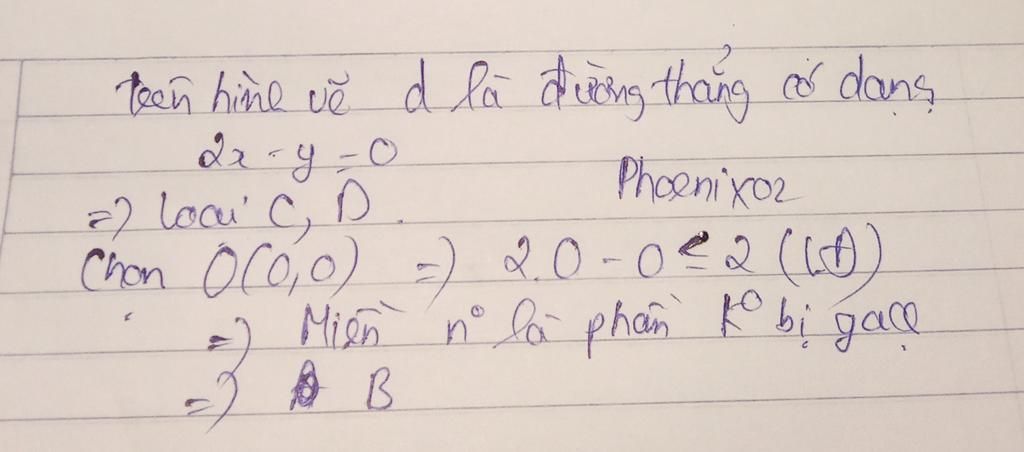 trên hình vẽ d là đường thẳng có dạng
2x - y = 0
=> loại C, D.
Phoenix02
Chọn O(0,0) => 2.0 - 0 ≤ 2 (Lđ)
=> Miền n° là phần k° bị gạch
=> B